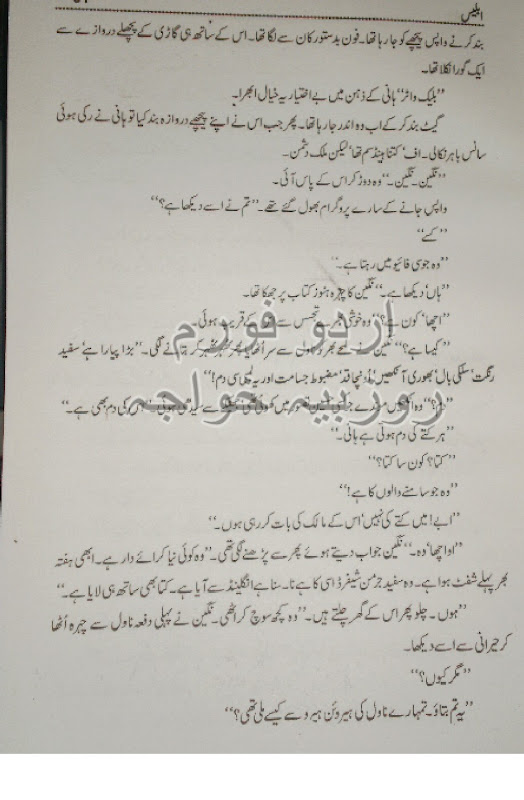 ابلیس
بند کرنے واپس پیچھے کو جا رہا تھا۔ فون بدستور کان سے لگا تھا۔ اس کے ساتھ ہی گاڑی کے پچھلے دروازے سے
ایک گورا نکلا تھا۔
”بلیک واٹر“ ہانی کے ذہن میں بے اختیار یہ خیال ابھرا۔
گیٹ بند کر کے اب وہ اندر جا رہا تھا۔ پھر جب اس نے اپنے پیچھے دروازہ بند کیا تو ہانی نے رکی ہوئی
سانس باہر نکالی۔ اف‘ کتنا ہینڈسم تھا‘ لیکن ملک دشمن۔
”نگین۔ نگین۔“ وہ دوڑ کر اس کے پاس آئی۔
واپس جانے کے سارے پروگرام بھول گئے تھے۔ ”تم نے اسے دیکھا ہے؟“
”کسے“
”وہ جو سی فائیو میں رہتا ہے۔“
”ہاں‘ دیکھا ہے۔“ نگین کا چہرہ ہنوز کتاب پر جھکا تھا۔
”اچھا‘ کون ہے؟“ وہ خوشی بھرے تجسس سے اس کے قریب ہوئی۔
”کیسا ہے؟“ نگین نے لمحے بھر کو ناول سے سر اٹھایا پھر ٹھہر ٹھہر کر بتانے لگی۔ ”بڑا پیارا ہے‘ سفید
رنگت‘ سلکی بال‘ بھوری آنکھیں‘ اونچا قد‘ مضبوط جسامت اور یہ لمبی سی دم!“
”دم؟“ وہ آنکھیں موندے تصور میں کھوئی سے سیدھی ہوئی۔ ”اس کی دم بھی ہے۔“
”ہر کتے کی دم ہوتی ہے ہانی۔“
”کتا؟ کون سا کتا؟“
”وہ جو سامنے والوں کا ہے!“
”ابے! میں کتے کی نہیں‘ اس کے مالک کی بات کر رہی ہوں۔“
”او اچھا‘ وہ۔“ نگین جواب دیتے ہوئے پھر سے پڑھنے لگی تھی۔ ”وہ کوئی نیا کرائے دار ہے۔ ابھی ہفتہ
بھر پہلے شفٹ ہوا ہے۔ وہ سفید جرمن شیفرڈ اسی کا ہے نا۔ سنا ہے انگلینڈ سے آیا ہے۔ کتا بھی ساتھ ہی لایا ہے۔“
”ہوں۔ چلو پھر اس کے گھر چلتے ہیں۔“ وہ کچھ سوچ کر اٹھی۔ نگین نے پہلی دفعہ ناول سے چہرہ اُٹھا
کر حیرانی سے اسے دیکھا۔
”مگر کیوں؟“
”یہ تم بتاؤ۔ تمہارے ناول کی ہیروئن ہیرو سے کیسے ملی تھی؟“
اردو فورم
روزیبہ خواجہ